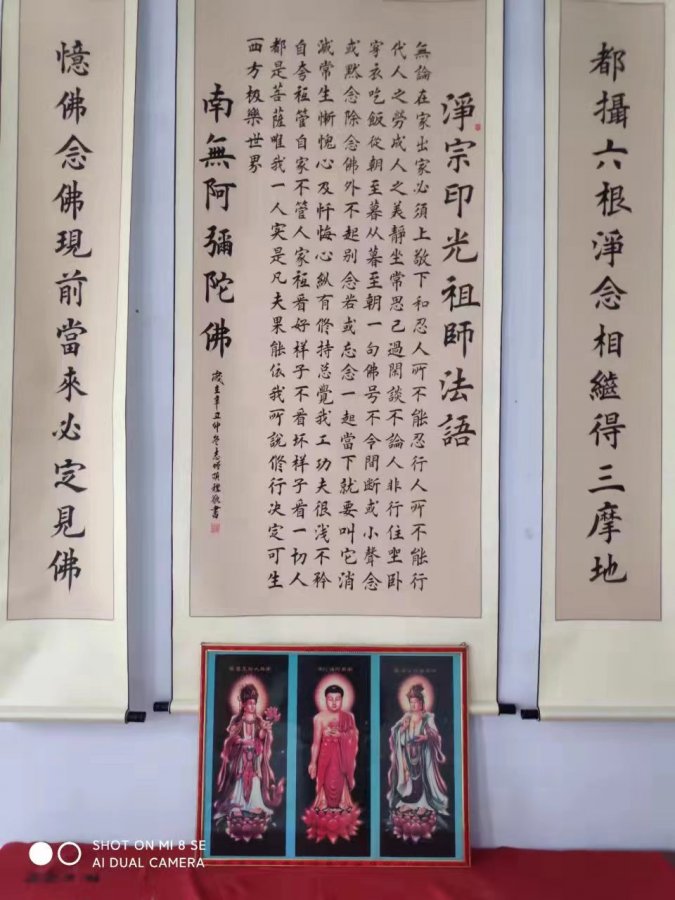 都攝六根淨念相繼得三摩地
淨宗印光祖師法語
無論在家出家必須上敬下和忍人所不能忍行人所不能行
代人之勞成人之美靜坐常思己過閑談不論人非行住坐卧
穿衣吃飯從朝至暮从暮至朝一句佛号不令間断或小聲念
或默念除念佛外不起别念若或忘念一起當下就要叫它消
滅常生慚愧心及忏悔心纵有修持总覺我工功夫很浅不矜
自夸祖管自家不管人家祖看好样子不看坏样子看一切人
都是菩薩唯我一人实是凡夫果能依我所說修行决定可生
西方极樂世界
南無阿彌陀佛
辛丑仲冬頂禮敬書
憶佛念佛現前當來必定見佛
SHOT ON MI 8 SE
AI DUAL CAMERA